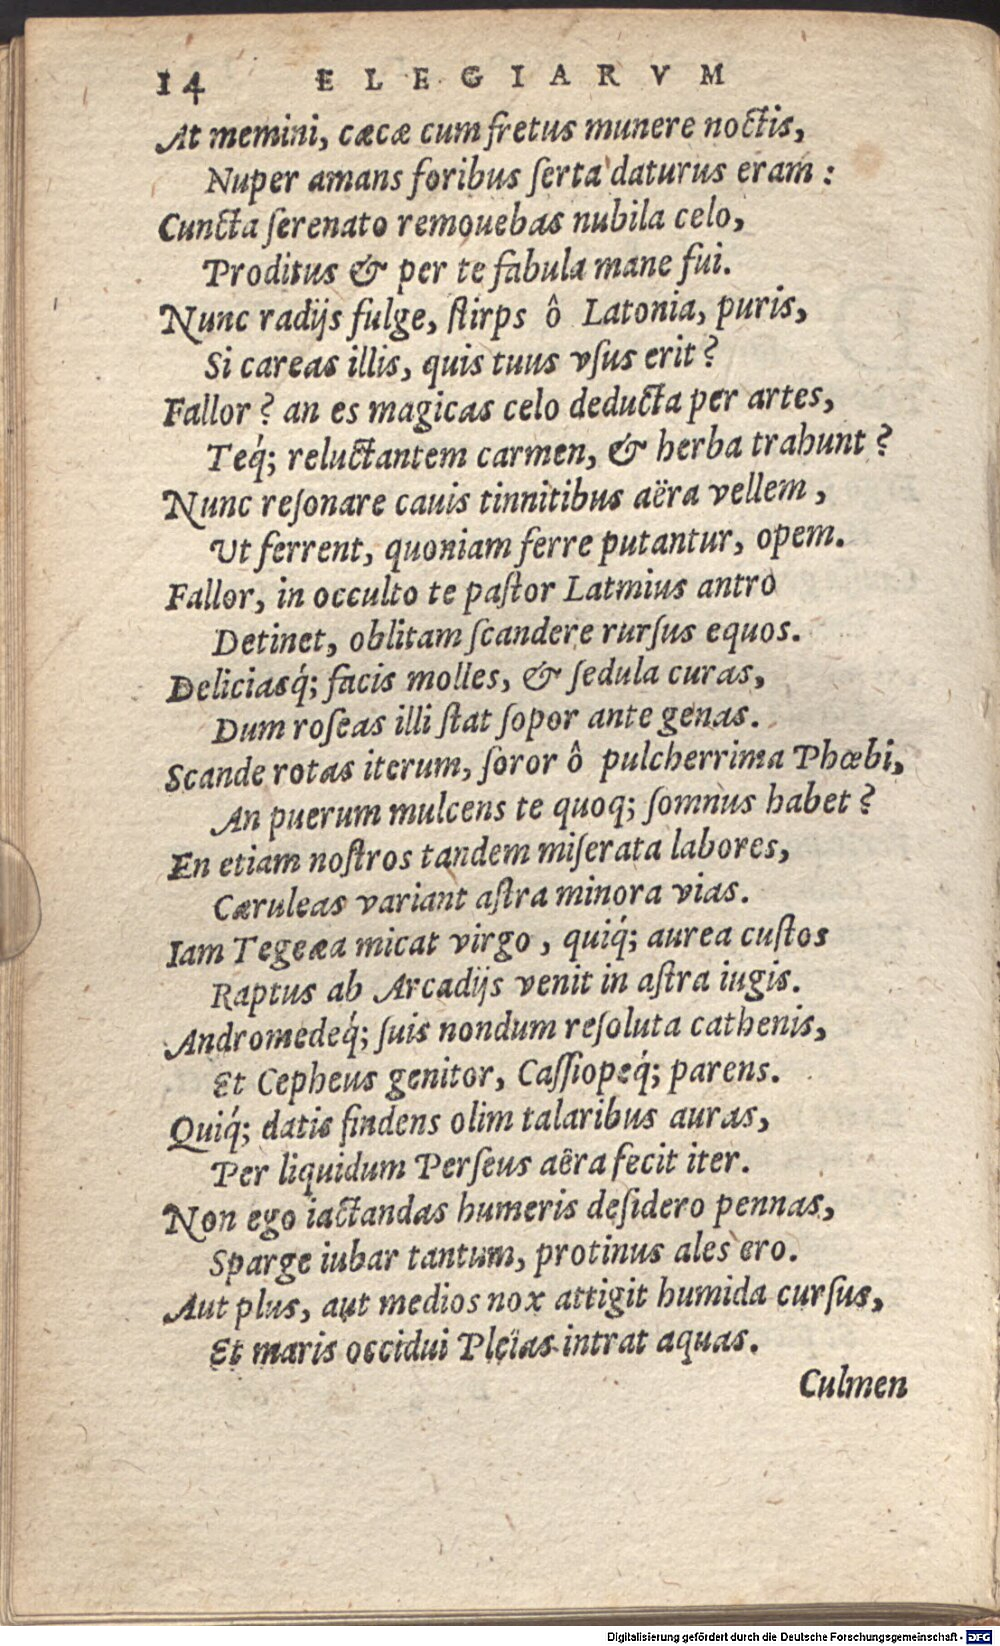 14 ELEGIARVM
At memini, cæcæ cum fretus munere noctis,
Nuper amans foribus ſerta daturus eram:
Cuncta ſerenato remouebas nubila celo,
Proditus & per te fabula mane fui.
Nunc radijs fulge, ſtirps ô Latonia, puris,
Si careas illis, quis tuus vſus erit?
Fallor? an es magicas celo deducta per artes,
Teq́; reluctantem carmen, & herba trahunt?
Nunc reſonare cauis tinnitibus aëra vellem,
Ut ferrent, quoniam ferre putantur, opem.
Fallor, in occulto te paſtor Latmius antro
Detinet, oblitam ſcandere rurſus equos.
Deliciasq́; facis molles, & ſedula curas,
Dum roſeas illi ſtat ſopor ante genas.
Scande rotas iterum, ſoror ô pulcherrima Phœbi,
An puerum mulcens te quoq; ſomnus habet?
En etiam noſtros tandem miſerata labores,
Cæruleas variant aſtra minora vias.
Iam Tegeæa micat virgo, quiq́; aurea cuſtos
Raptus ab Arcadijs venit in aſtra iugis.
Andromedeq́; ſuis nondum reſoluta cathenis,
Et Cepheus genitor, Caſſiopeq́; parens.
Quiq́; datis findens olim talaribus auras,
Per liquidum Perſeus aêra fecit iter.
Non ego iactandas humeris deſidero pennas,
Sparge iubar tantum, protinus ales ero.
Aut plus, aut medios nox attigit humida curſus,
Et maris occidui Pleïas intrat aquas.
Culmen
Digitalisierung gefördert durch die Deutsche Forschungsgemeinschaft - DFG